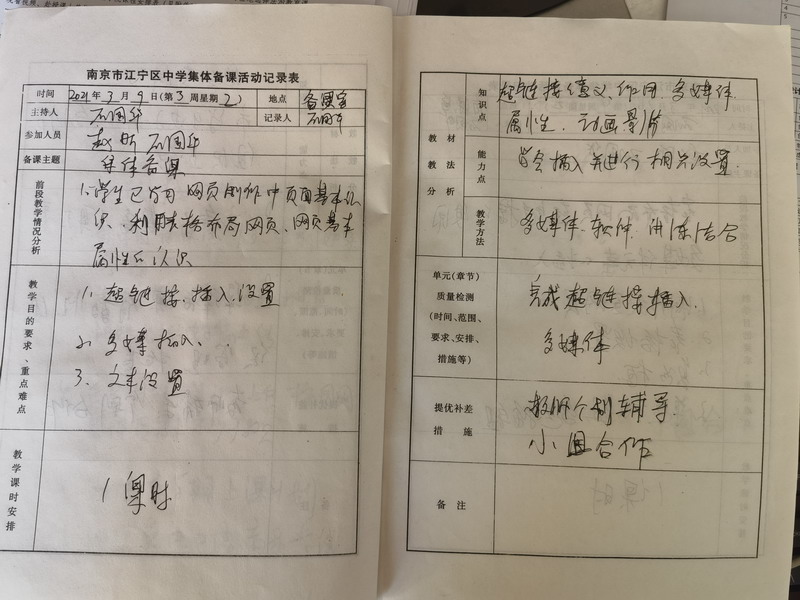 南京市江宁区中学集体备课活动记录表
时间 2021年3月9日(第3周星期2) 地点 备课室
主持人 石国华 记录人 石国华
参加人员 赵昕 石国华
备课主题 集体备课
前段教学情况分析
1、学生已学习网页制作中页面基本认
识、利用表格布局网页、网页基本
属性的认识
教学目的要求、重点难点
1、超链接、插入、设置
2、多媒插入、
3、文本设置
教学课时安排
1课时
教材教法分析
知识点
超链接(意义、作用、多媒体
属性、动画影片
能力点
学会插入并进行相关设置
教学方法
多媒体、软件、讲练结合
单元(章节)
质量检测
(时间、范围、
要求、安排、
措施等)
完成超链接插入、
多媒体
提优补差
措施
教师个别辅导
小组合作
备注